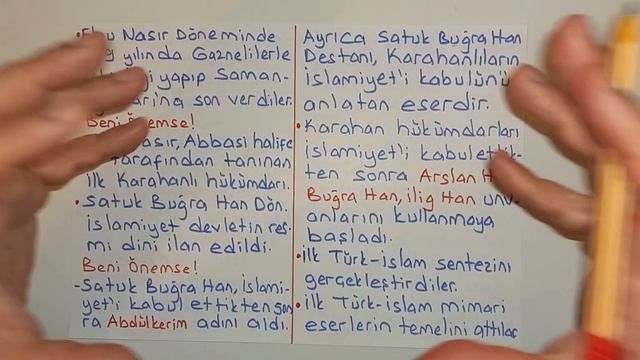 Nasır Döneminde
yılında Gaznelilerle
yapıp Saman-
son verdiler.
Beni Önemse!
Abbasi halife
tarafından tanınan
ilk Karahanlı hükümdarı.
• Satuk Buğra Han Dön.
islamiyet devletin res-
mi dini ilan edildi.
Beni Önemse!
-Satuk Buğra Han, islami-
yet'i kabul ettikten son
ra Abdülkerim adını aldı.
Ayrıca Satuk Buğra Han
Destanı, Karahanlıların
islamiyet'i kabulünü
anlatan eserdir.
• Karahan hükümdarları
islamiyet'i
ten sonra Arslan
Buğra Han, ilig Han
anlarını kullanmaya
başladı.
• ilk Türk-islam sentezini
gerçekleştirdiler.
• ilk Türk-islam mimari
eserlerin temelini attılar